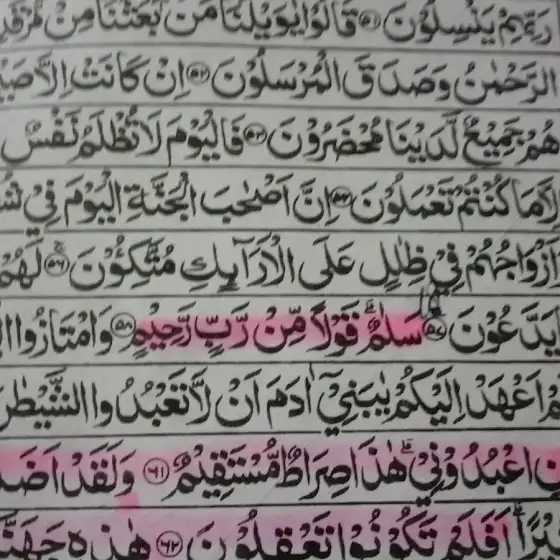 رَبِّهِمْ يَنْسِلُوْنَ ﴿٥١﴾ قَالُوْا يٰوَيْلَنَا مَنْۢ بَعَثَنَا مِنْ مَّرْقَدِ
الرَّحْمٰنُ وَصَدَقَ الْمُرْسَلُوْنَ ﴿٥٢﴾ اِنْ كَانَتْ اِلَّا صَيْ
هُمْ جَمِيْعٌ لَّدَيْنَا مُحْضَرُوْنَ ﴿٥٣﴾ فَالْيَوْمَ لَا تُظْلَمُ نَفْسٌ
لَّا مَا كُنْتُمْ تَعْمَلُوْنَ ﴿٥٤﴾ اِنَّ اَصْحٰبَ الْجَنَّةِ الْيَوْمَ فِيْ شُ
اَزْوَاجُهُمْ فِيْ ظِلٰلٍ عَلَى الْاَرَآئِكِ مُتَّكِـُٔوْنَ ﴿٥٦﴾ لَهُمْ
يَدَّعُوْنَ ﴿٥٧﴾ سَلٰمٌ ۟ قَوْلًا مِّنْ رَّبٍّ رَّحِيْمٍ ﴿٥٨﴾ وَامْتَازُوا ا
اَعْهَدْ اِلَيْكُمْ يٰبَنِيْٓ اٰدَمَ اَنْ لَّا تَعْبُدُوا الشَّيْطٰنَ
نِ اعْبُدُوْنِيْ ؔ هٰذَا صِرَاطٌ مُّسْتَقِيْمٌ ﴿٦١﴾ وَلَقَدْ اَضَلَّ
يْرًا ؕ اَفَلَمْ تَكُوْنُوْا تَعْقِلُوْنَ ﴿٦٢﴾ هٰذِهٖ جَهَنَّ